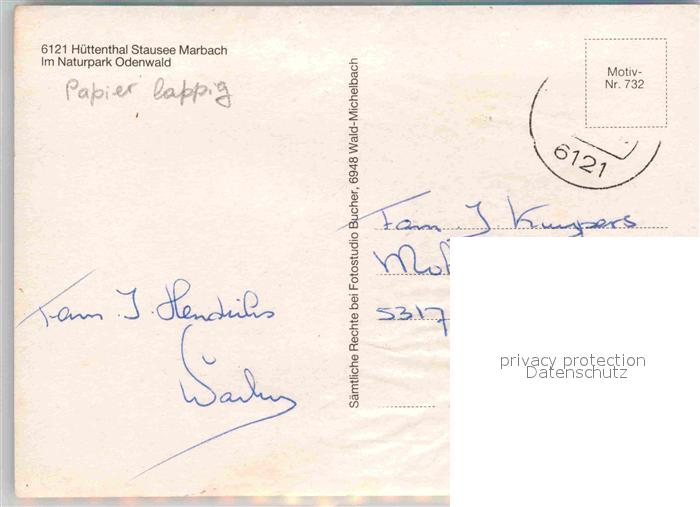 6121 Hüttenthal Stausee Marbach
Im Naturpark Odenwald
Papier lappig
Motiv-
Nr. 732
6121
Sämtliche Rechte bei Fotostudio Bucher, 6948 Wald-Michelbach
Fam. J Kuypers
5317
Fam. J. Hendriks
privacy protection
Datenschutz